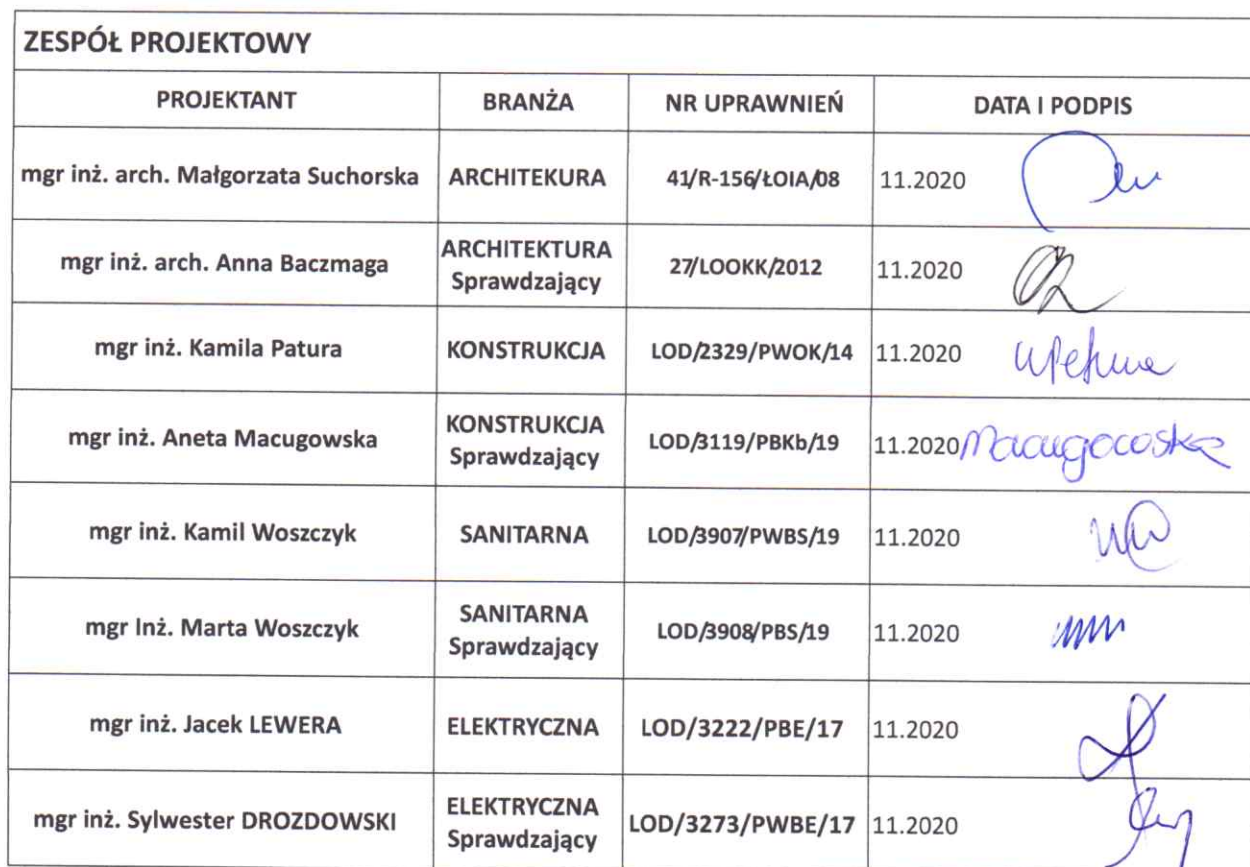 ZESPÓŁ PROJEKTOWY
PROJEKTANT BRANŻA NR UPRAWNIEŃ DATA I PODPIS
mgr inż. arch. Małgorzata Suchorska ARCHITEKURA 41/R-156/ŁOIA/08 11.2020
mgr inż. arch. Anna Baczmaga ARCHITEKTURA Sprawdzający 27/LOOKK/2012 11.2020
mgr inż. Kamila Patura KONSTRUKCJA LOD/2329/PWOK/14 11.2020
mgr inż. Aneta Macugowska KONSTRUKCJA Sprawdzający LOD/3119/PBKb/19 11.2020 Macugowska
mgr inż. Kamil Woszczyk SANITARNA LOD/3907/PWBS/19 11.2020
mgr Inż. Marta Woszczyk SANITARNA Sprawdzający LOD/3908/PBS/19 11.2020
mgr inż. Jacek LEWERA ELEKTRYCZNA LOD/3222/PBE/17 11.2020
mgr inż. Sylwester DROZDOWSKI ELEKTRYCZNA Sprawdzający LOD/3273/PWBE/17 11.2020